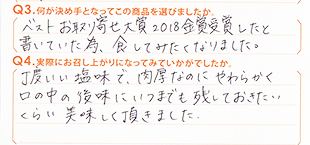 Q3.何が決め手となってこの商品を選びましたか。
ベストお取り寄せ大賞2018金賞受賞したと
書いていた為、食してみたくなりました。
Q4.実際にお召し上がりになってみていかがでしたか。
丁度いい塩味で、肉厚なのにやわらかく
口の中の後味にいつまでも残しておきたい
くらい美味しく頂きました。